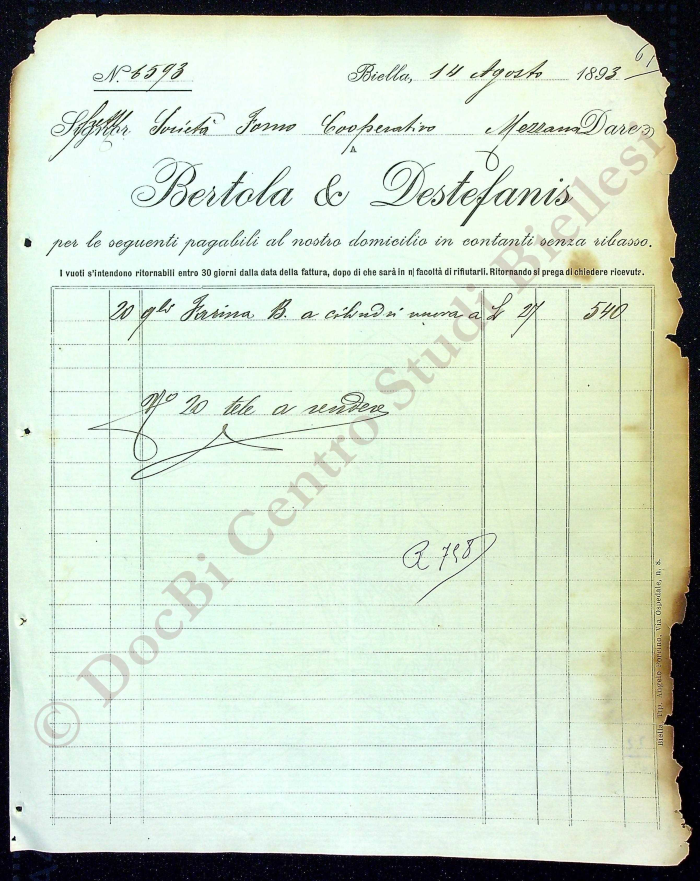 61
N. 6593 Biella, 14 Agosto 1893
Società Forno Cooperativo Mezzana Dare
a
Bertola & Destefanis
per le seguenti pagabili al nostro domicilio in contanti senza ribasso.
I vuoti s'intendono ritornabili entro 30 giorni dalla data della fattura, dopo di che sarà in n/ facoltà di rifiutarli. Ritornando si prega di chiedere ricevutr.
20 qli Farina B. a cilindri nuova a L 27 540
No 20 tele a rendere
R 798
Biella, Tip. Angelo Via Ospedale, n. 8.
© DocBi Centro Studi Biellesi